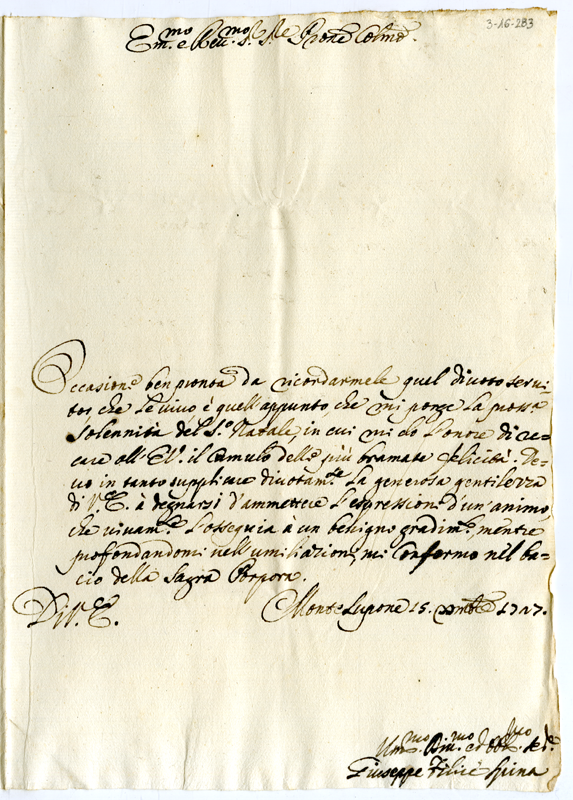 3-16-283
Em.mo e Rev.mo S.r S.r e Prone Colmo.
Occasione ben pronta da ricordarmele quel divoto servi-
tor, che Le vivo è quell'appunto, che mi porge La pross.a
Solennità del S.o Natale, in cui mi do L'onore di re-
care all'E.V. il Cumulo delle più bramate felicità. De-
vo in tanto supplicare divotam.te La generosa gentilezza
di V.E. à degnarsi d'ammettere L'espressioni d'un'animo,
che vivam.te L'ossequia à un benigno gradim.to, mentre
profondandomi nell'umiliazioni, mi Confermo nel ba-
cio della Sagra Porpora.
Di V.E.
Monte Lupone 15. Xmbre 1727.
Um.mo Div.mo ed Obb.mo Se.re
Giuseppe Felice Spina